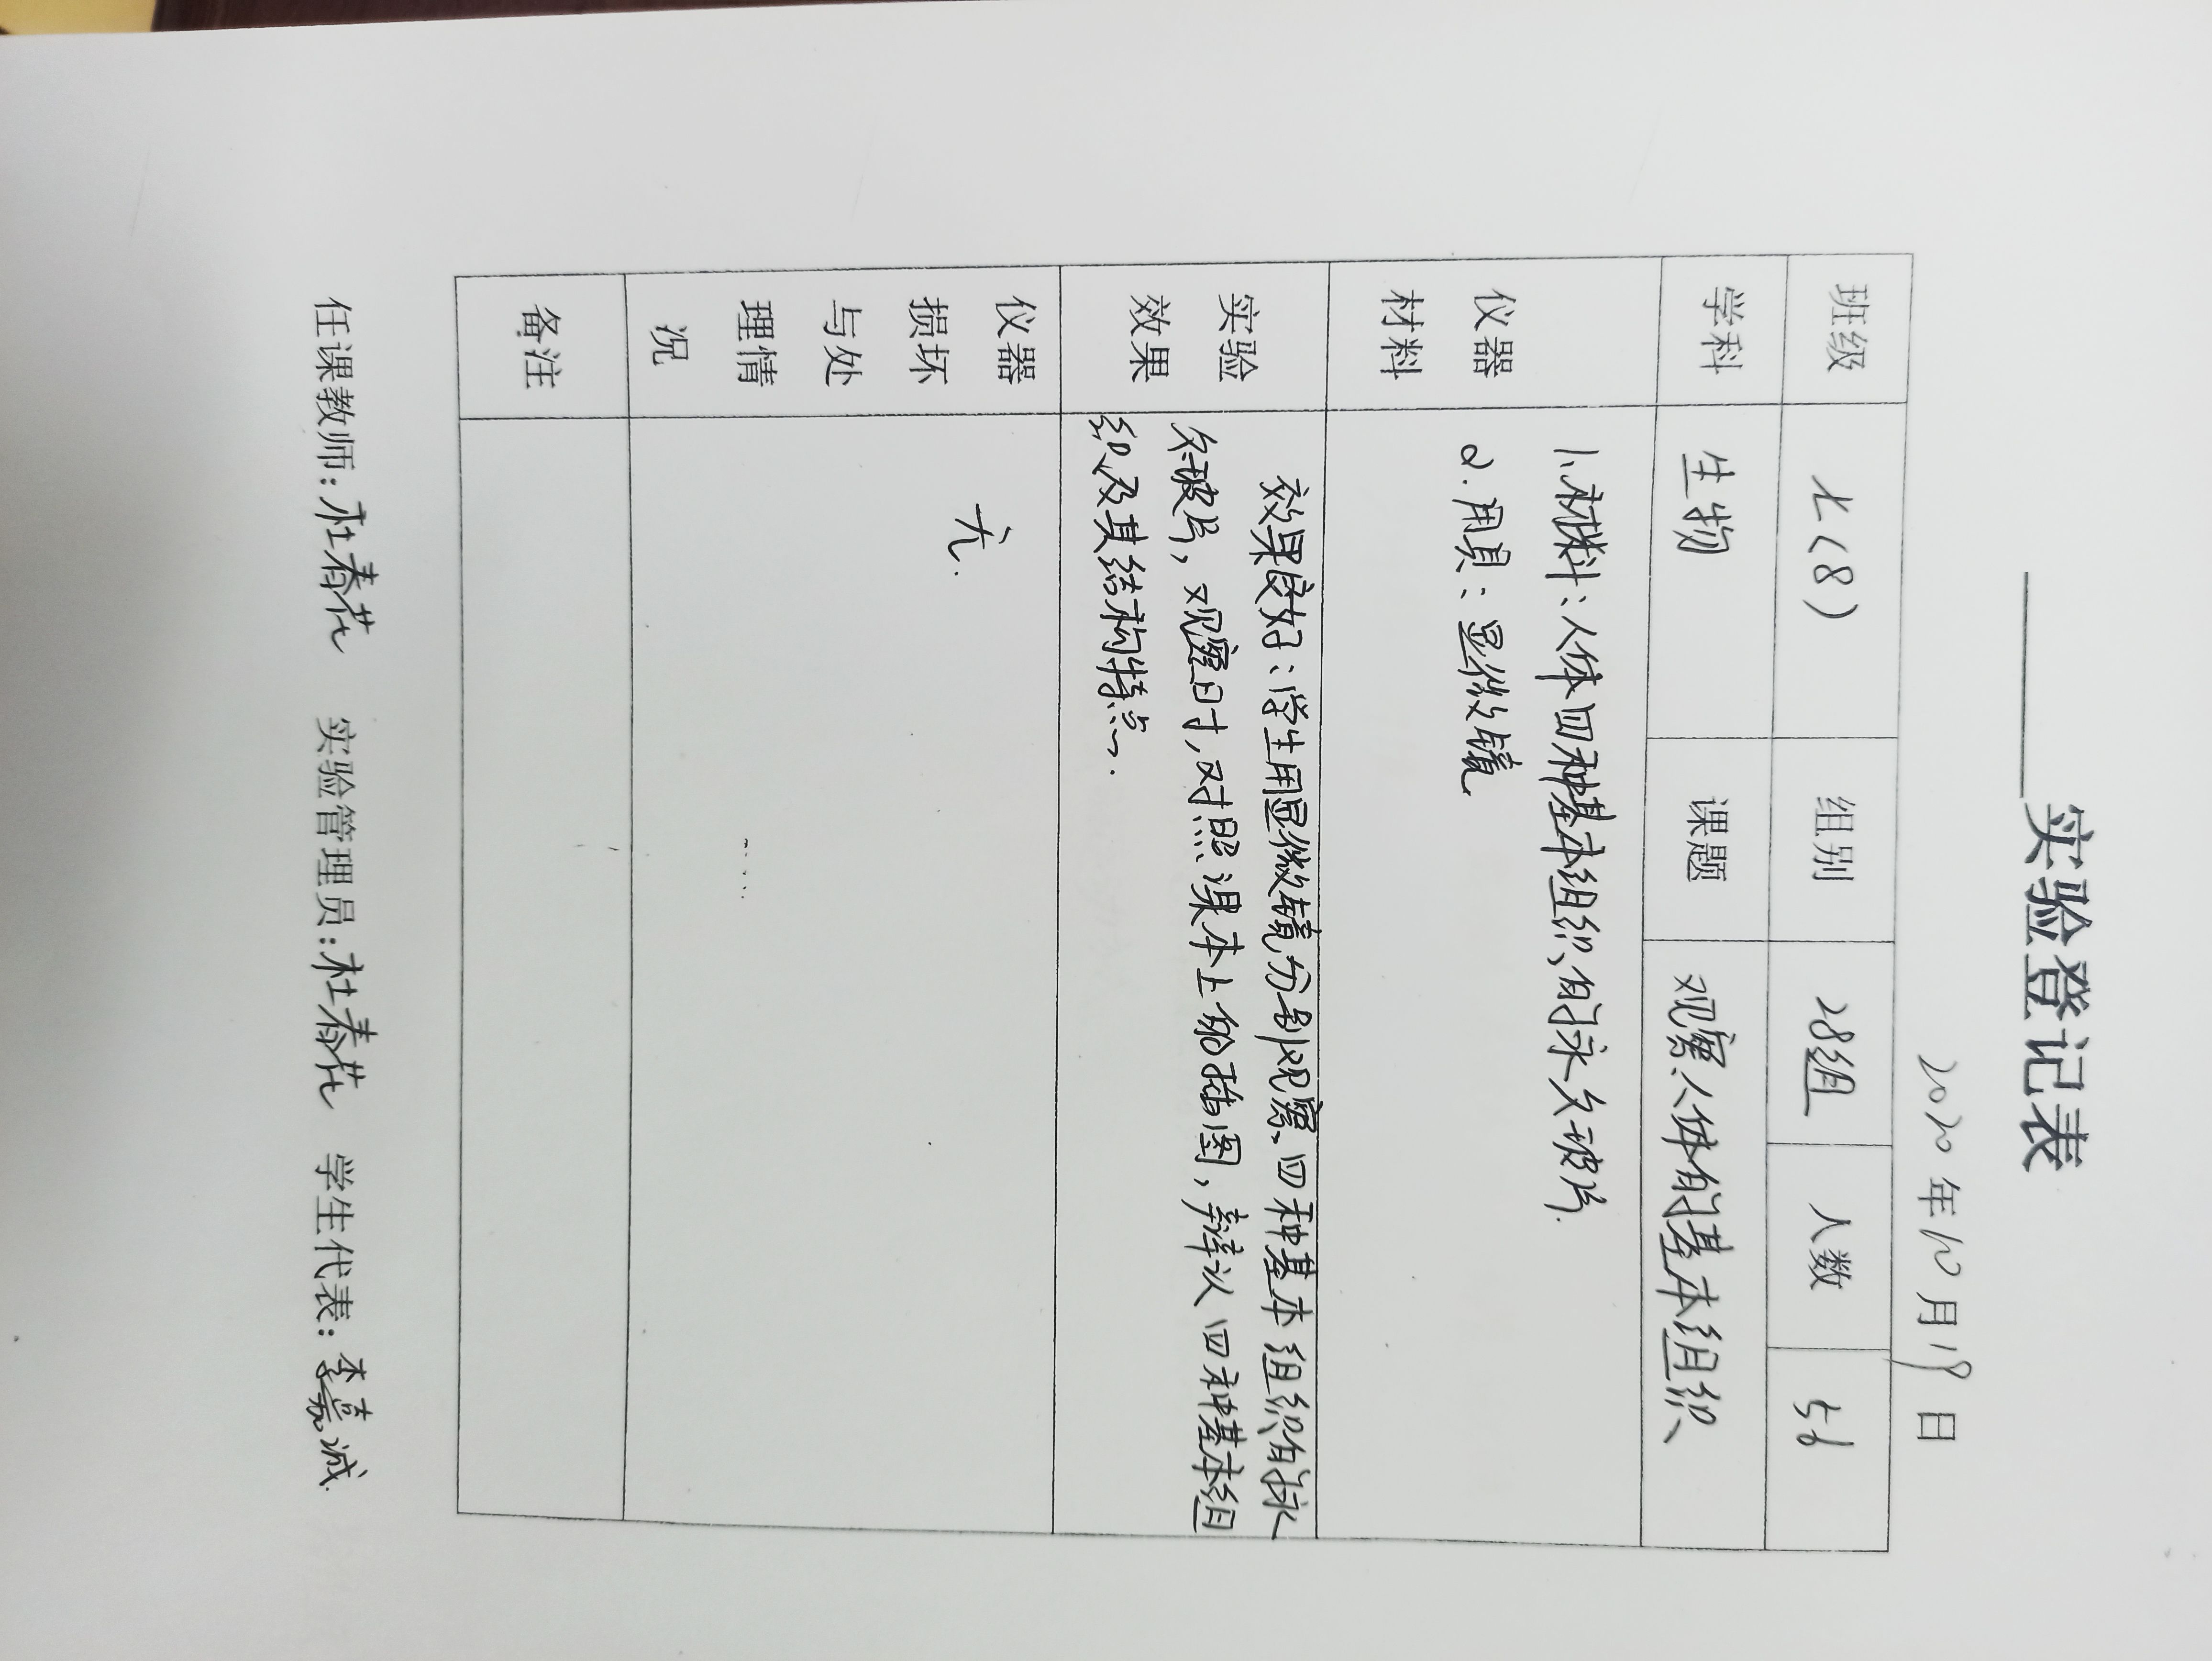 实验登记表
2020年10月19日
班级 七(8) 组别 28组 人数 56
学科 生物 课题 观察人体的基本组织
仪器材料
1.材料:人体四种基本组织的永久玻片.
2.用具:显微镜.
实验效果
效果良好:学生用显微镜分别观察四种基本组织的永
久玻片,观察时,对照课本上的插图,辨认四种基本组
织及其结构特点.
仪器
损坏
与处
理情
况
无.
备注
任课教师:杜春花 实验管理员:杜春花 学生代表:李嘉诚.